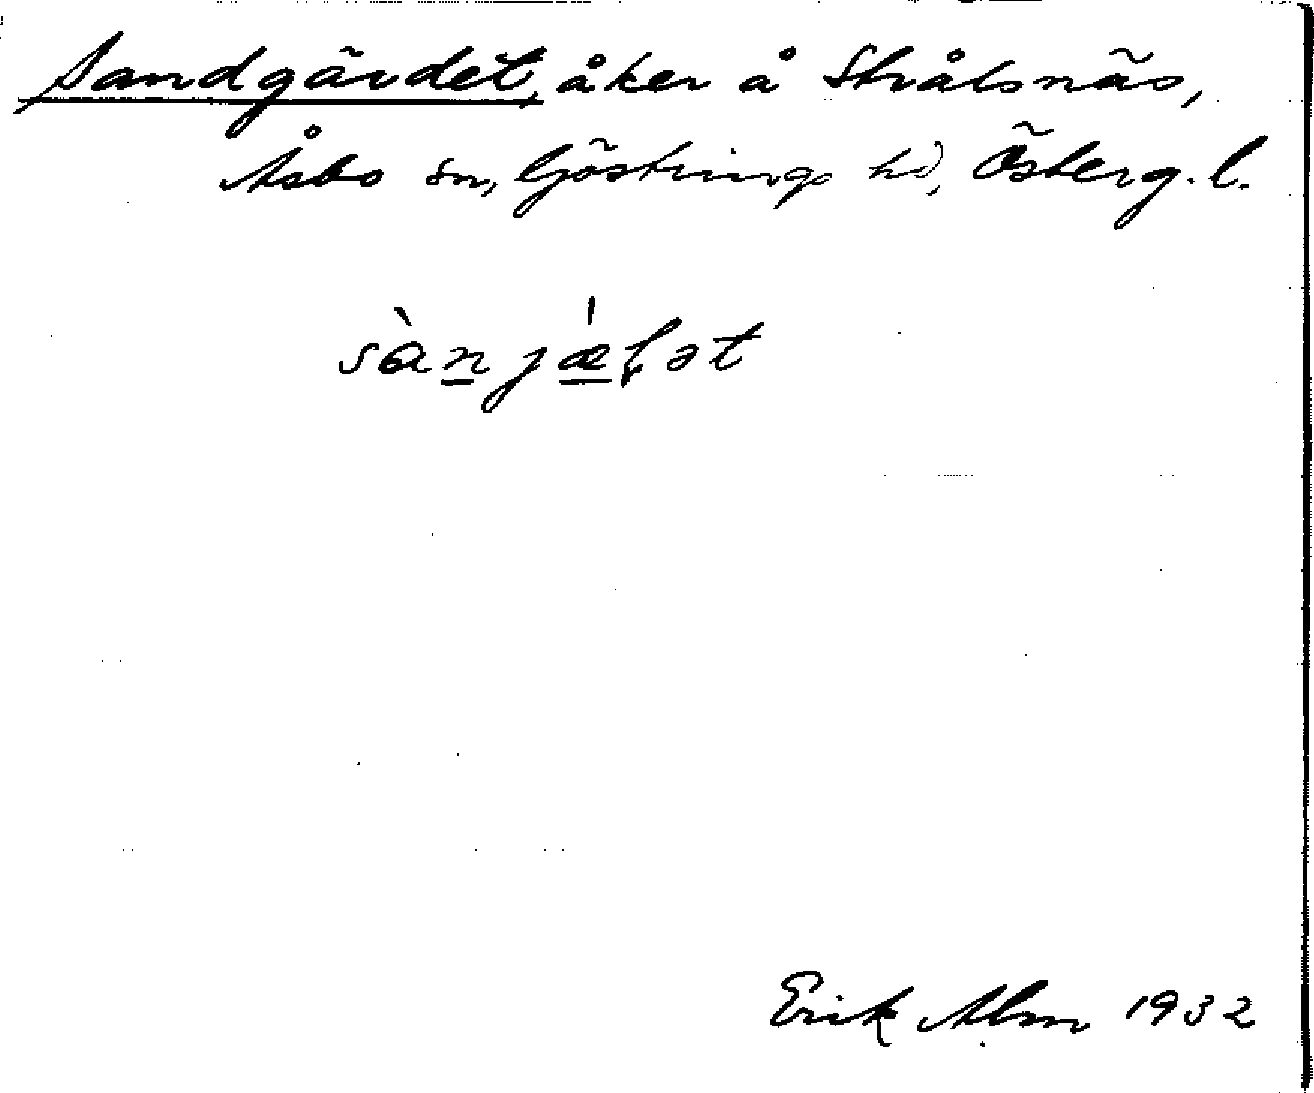 Sandgärdet, åker å Strålsnäs,
Åsbo sn, Göstrings hd, Österg. l.
sànjæ̍ɽət
Erik Alm 1932